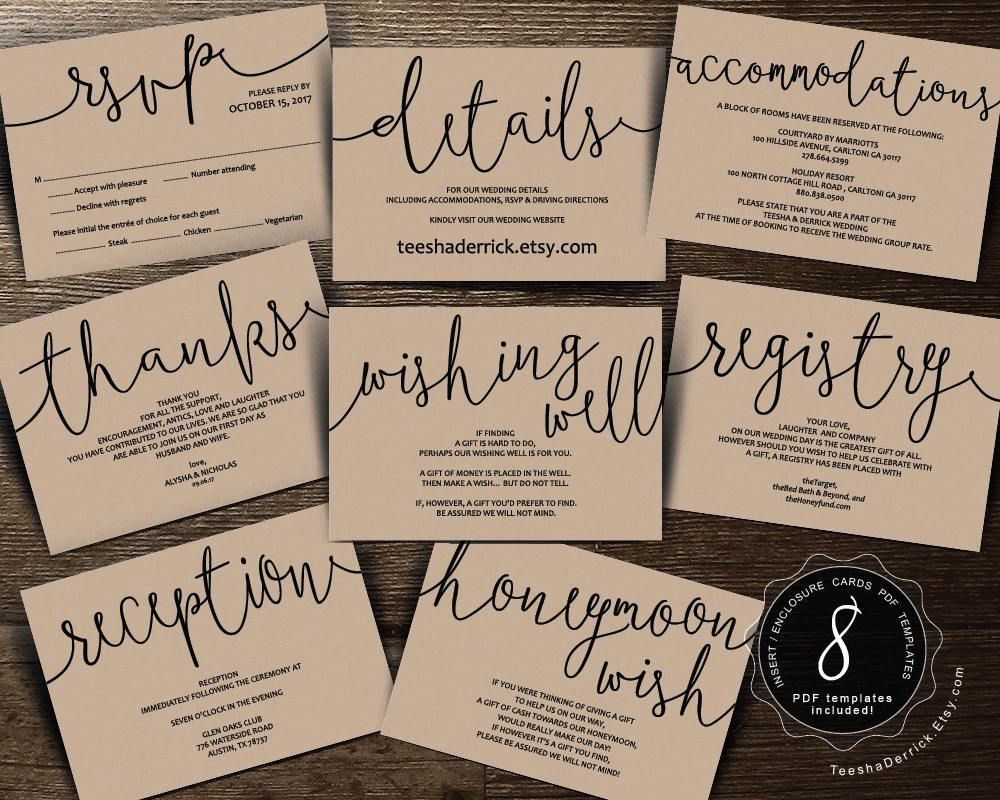 rsvp
PLEASE REPLY BY
OCTOBER 15, 2017
M
Accept with pleasure Number attending
Decline with regrets
Please initial the entrée of choice for each guest
Steak Chicken Vegetarian
details
FOR OUR WEDDING DETAILS
INCLUDING ACCOMMODATIONS, RSVP & DRIVING DIRECTIONS
KINDLY VISIT OUR WEDDING WEBSITE
teeshaderrick.etsy.com
accommodations
A BLOCK OF ROOMS HAVE BEEN RESERVED AT THE FOLLOWING:
COURTYARD BY MARRIOTTS
100 HILLSIDE AVENUE, CARLTONI GA 30117
278.664.5299
HOLIDAY RESORT
100 NORTH COTTAGE HILL ROAD , CARLTONI GA 30117
880.838.0500
PLEASE STATE THAT YOU ARE A PART OF THE
TEESHA & DERRICK WEDDING
AT THE TIME OF BOOKING TO RECEIVE THE WEDDING GROUP RATE.
thanks
THANK YOU
FOR ALL THE SUPPORT,
ENCOURAGEMENT, ANTICS, LOVE AND LAUGHTER
YOU HAVE CONTRIBUTED TO OUR LIVES. WE ARE SO GLAD THAT YOU
ARE ABLE TO JOIN US ON OUR FIRST DAY AS
HUSBAND AND WIFE.
love,
ALYSHA & NICHOLAS
09.06.17
wishing
well
IF FINDING
A GIFT IS HARD TO DO,
PERHAPS OUR WISHING WELL IS FOR YOU.
A GIFT OF MONEY IS PLACED IN THE WELL.
THEN MAKE A WISH... BUT DO NOT TELL.
IF, HOWEVER, A GIFT YOU'D PREFER TO FIND.
BE ASSURED WE WILL NOT MIND.
registry
YOUR LOVE,
LAUGHTER AND COMPANY
ON OUR WEDDING DAY IS THE GREATEST GIFT OF ALL.
HOWEVER SHOULD YOU WISH TO HELP US CELEBRATE WITH
A GIFT, A REGISTRY HAS BEEN PLACED WITH
theTarget,
theBed Bath & Beyond, and
theHoneyfund.com
reception
RECEPTION
IMMEDIATELY FOLLOWING THE CEREMONY AT
SEVEN O'CLOCK IN THE EVENING
GLEN OAKS CLUB
776 WATERSIDE ROAD
AUSTIN, TX 78737
honeymoon
wish
IF YOU WERE THINKING OF GIVING A GIFT
TO HELP US ON OUR WAY,
A GIFT OF CASH TOWARDS OUR HONEYMOON,
WOULD REALLY MAKE OUR DAY!
IF HOWEVER IT'S A GIFT YOU FIND,
PLEASE BE ASSURED WE WILL NOT MIND!
INSERT / ENCLOSURE CARDS PDF TEMPLATES
8
PDF templates
included!
TeeshaDerrick.Etsy.com